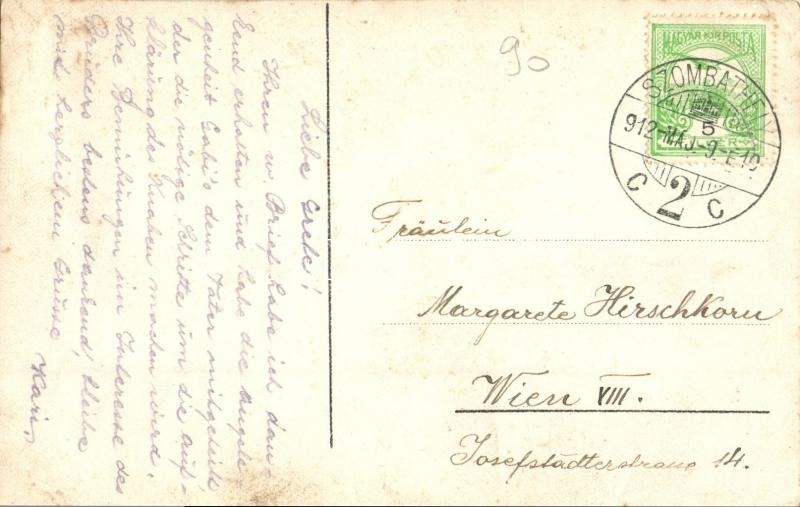 Liebe Grete!
Ihren w. Brief habe ich dan-
kend erhalten und habe die Angele-
genheit Gabi's dem Vater mitgeteilt
der die nötige Schritte um die Auf-
klärung des Knaben machen wird.
Ihre Bemühungen im Interesse des
Bruders bestens dankend, bleibe
mit herzlichem Grusse
Kari
90
MAGYAR KIR. POSTA
SZOMBATHELY
5
912-MAJ.-9.-E.10
C 2 C
Fräulein
Margarete Hirschkorn
Wien VIII.
Josefstädterstrasse 14.